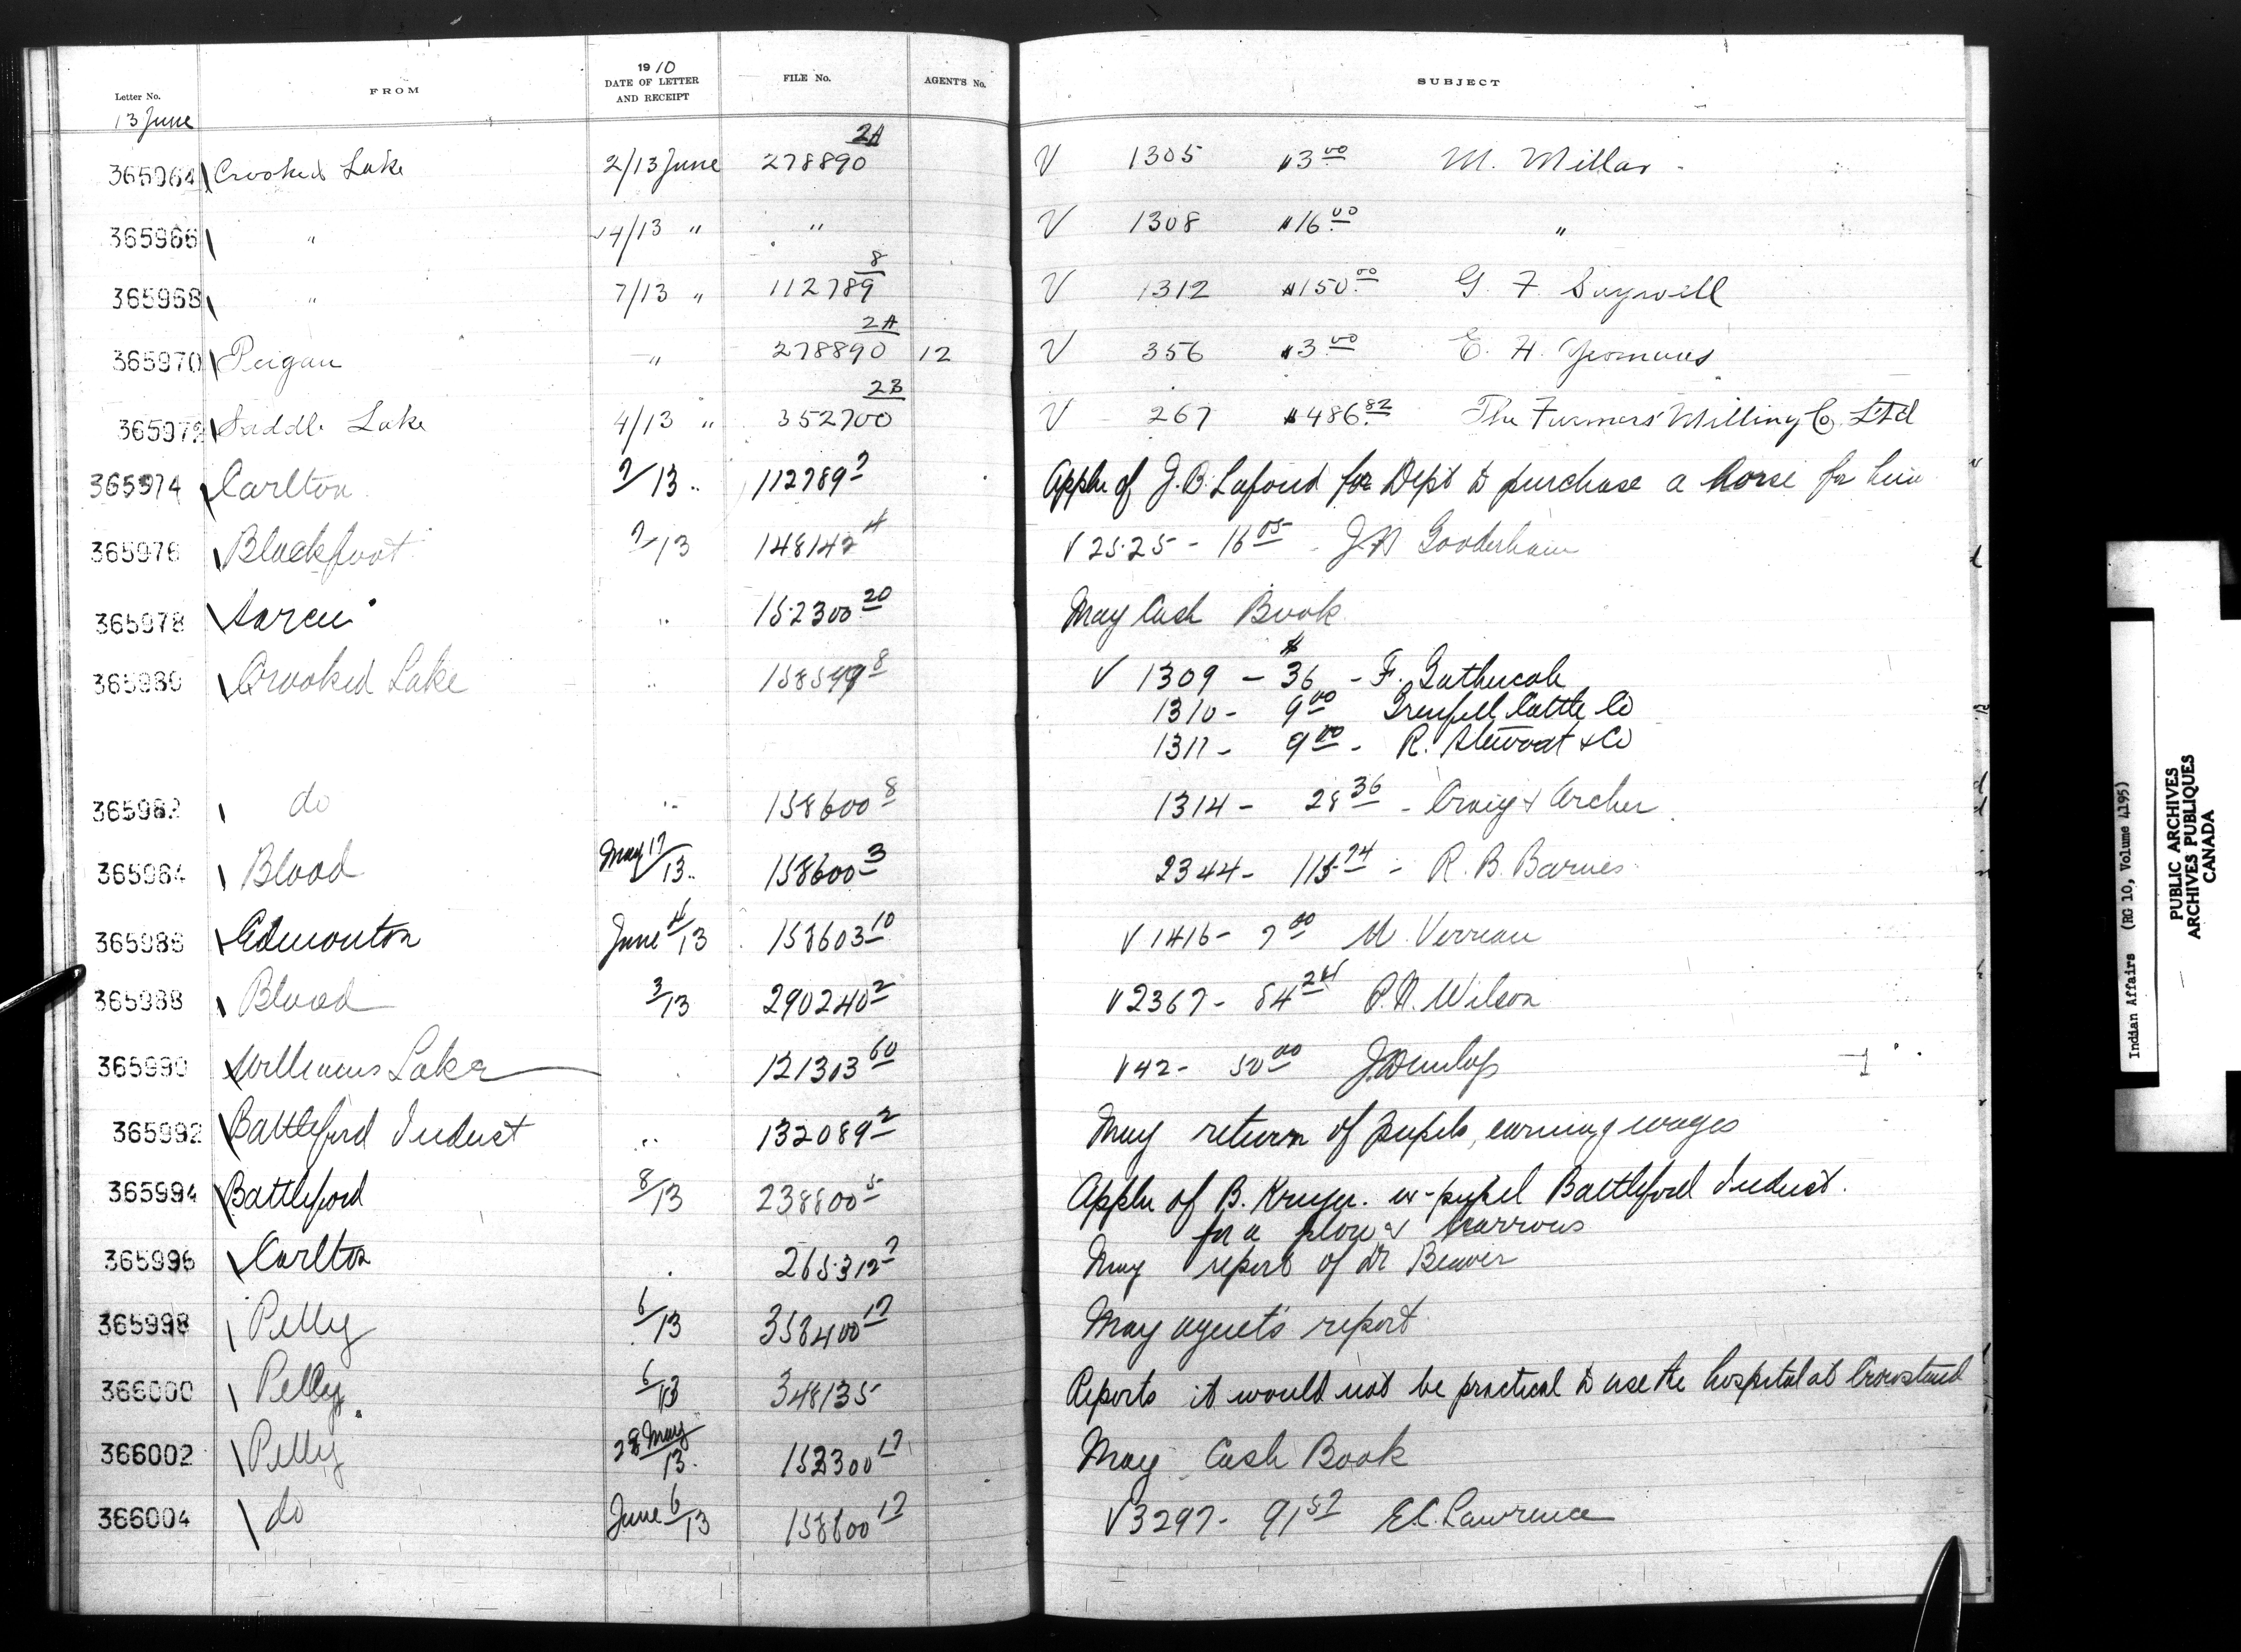 Letter No. FROM 1910 DATE OF LETTER AND RECEIPT FILE No. AGENT'S No. SUBJECT
13 June
365964 Crooked Lake 2/13 June 278890 2A V 1305 $3.00 M. Millar
365966 " 4/13 " " V 1308 $16.00 "
365968 " 7/13 " 112789 8 V 1312 $150.00 G. F. Saywell
365970 Peigan " 278890 2A 12 V 356 $3.00 E. H. Yeomans
365972 Saddle Lake 4/13 " 352700 2B V 267 $486.82 The Farmers' Milling Co. Ltd
365974 Carlton 7/13 " 112789 7 Appln of J. B. Lafond for Dept to purchase a horse for him
365976 Blackfoot 7/13 148142 4 V 2525 - 16.05 - J H Gooderham
365978 Sarcee " 152300 20 May Cash Book
365980 Crooked Lake " 158599 8 V 1309 - $36 - F. Gathercole
1310 - 9.00 Grenfell Cattle Co
1311 - 9.00 - R. Stewart & Co
365982 do " 158600 8 1314 - 28.36 - Craig & Archer
365984 Blood May 17/13 " 158600 3 2344 - 115.74 - R. B. Barnes
365986 Edmonton June 4/13 158603 10 V 1416 - 7.00 M. Verreau
365988 Blood 3/13 290240 2 V 2367 - 84.24 R. N. Wilson
365990 Williams Lake 121303 60 V 42 - 50.00 J Dunlop
365992 Battleford Indust " 132089 2 May return of pupils, earning wages
365994 Battleford 8/13 238800 5 Appln of B. Kruger. ex-pupil Battleford Indust.
for a plow & harrows
365996 Carlton 265312 7 May report of Dr Beaver
365998 Pelly 6/13 358400 17 May agent's report
366000 Pelly 6/13 348135 Reports it would not be practical to use the hospital at Crowstand
366002 Pelly 28 May/13 152300 17 May Cash Book
366004 do June 6/13 158600 17 V 3297 - 91.57 E. C. Lawrence
Indian Affairs (RG 10, Volume 4195)
PUBLIC ARCHIVES
ARCHIVES PUBLIQUES
CANADA